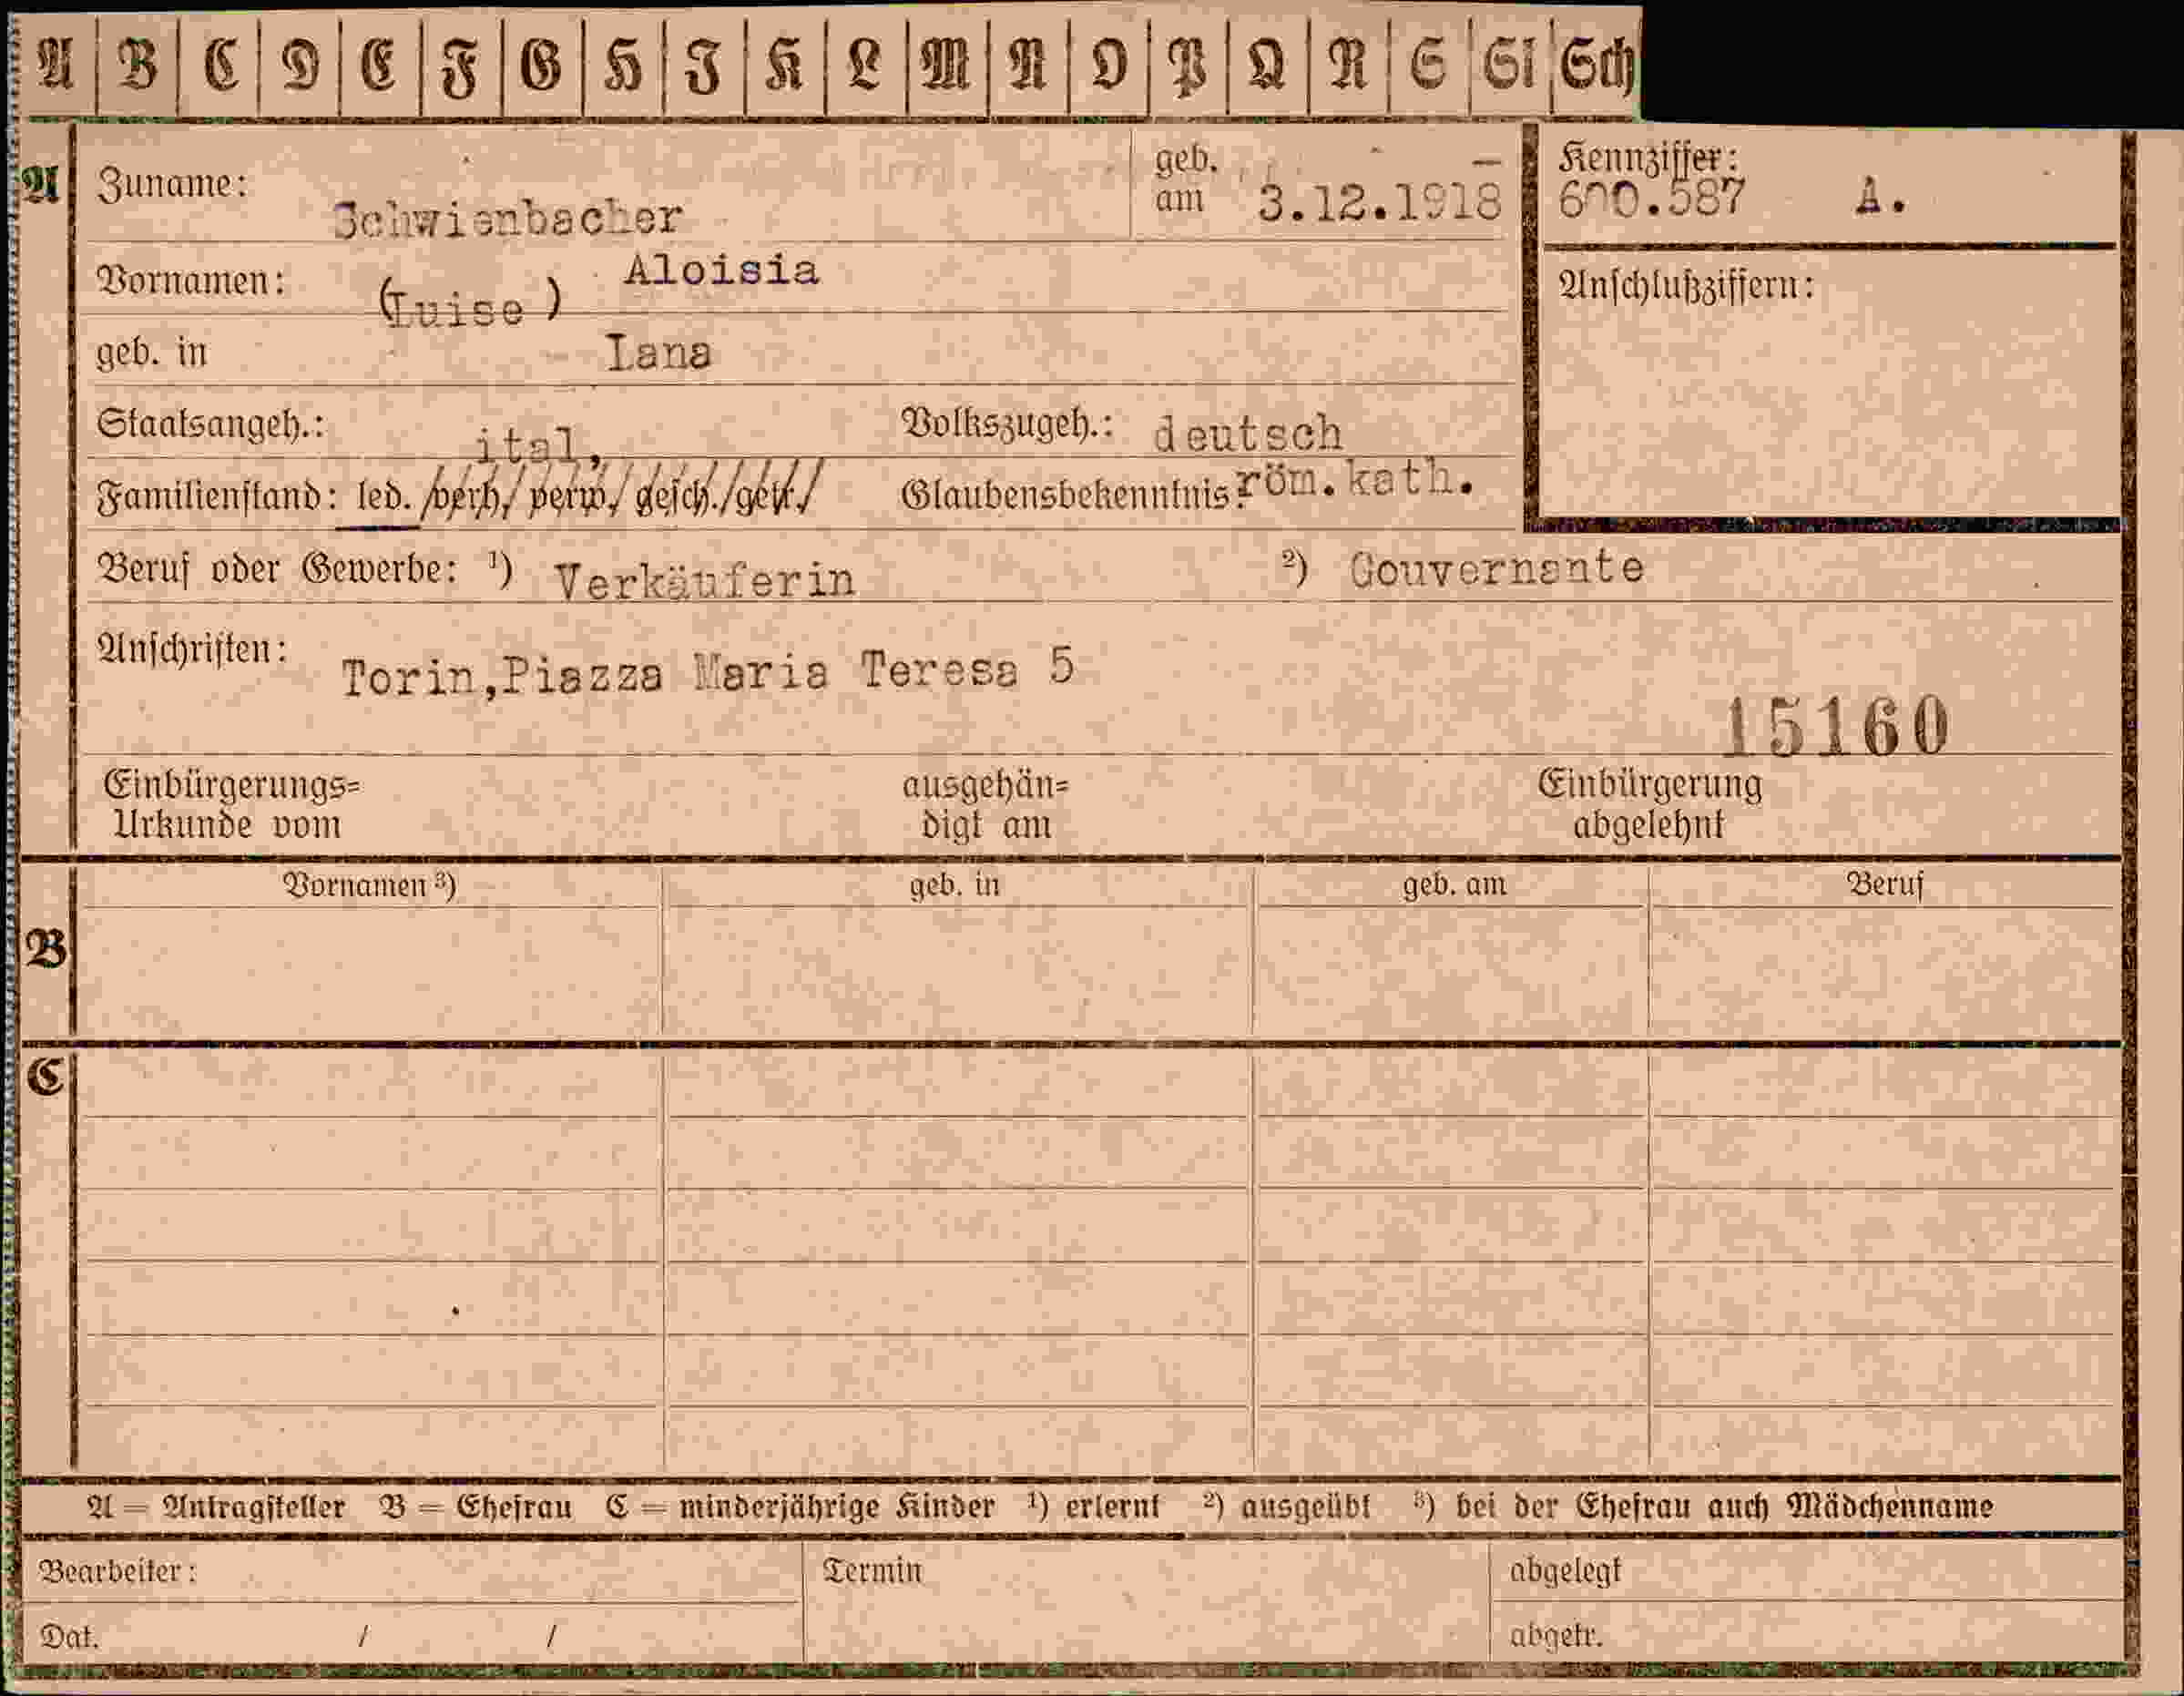 A B C D E F G H I K L M N O P Q R S St Sch
A Zuname: Schwienbacher geb. am 3.12.1918 Kennziffer: 600.587 A.
Vornamen: (Luise) Aloisia Anschlußziffern:
geb. in Lana
Staatsangeh.: ital, Volkszugeh.: deutsch
Familienstand: led. /verh./ verw./ gesch./getr./ Glaubensbekenntnis: röm.kath.
Beruf oder Gewerbe: ¹) Verkäuferin ²) Gouvernante
Anschriften: Torin,Piazza Maria Teresa 5
15160
Einbürgerungs= ausgehän= Einbürgerung
Urkunde vom digt am abgelehnt
B Vornamen ³) geb. in geb. am Beruf
C
A = Antragsteller B = Ehefrau C = minderjährige Kinder ¹) erlernt ²) ausgeübt ³) bei der Ehefrau auch Mädchenname
Bearbeiter: Termin abgelegt
Dat. / / abgetr.